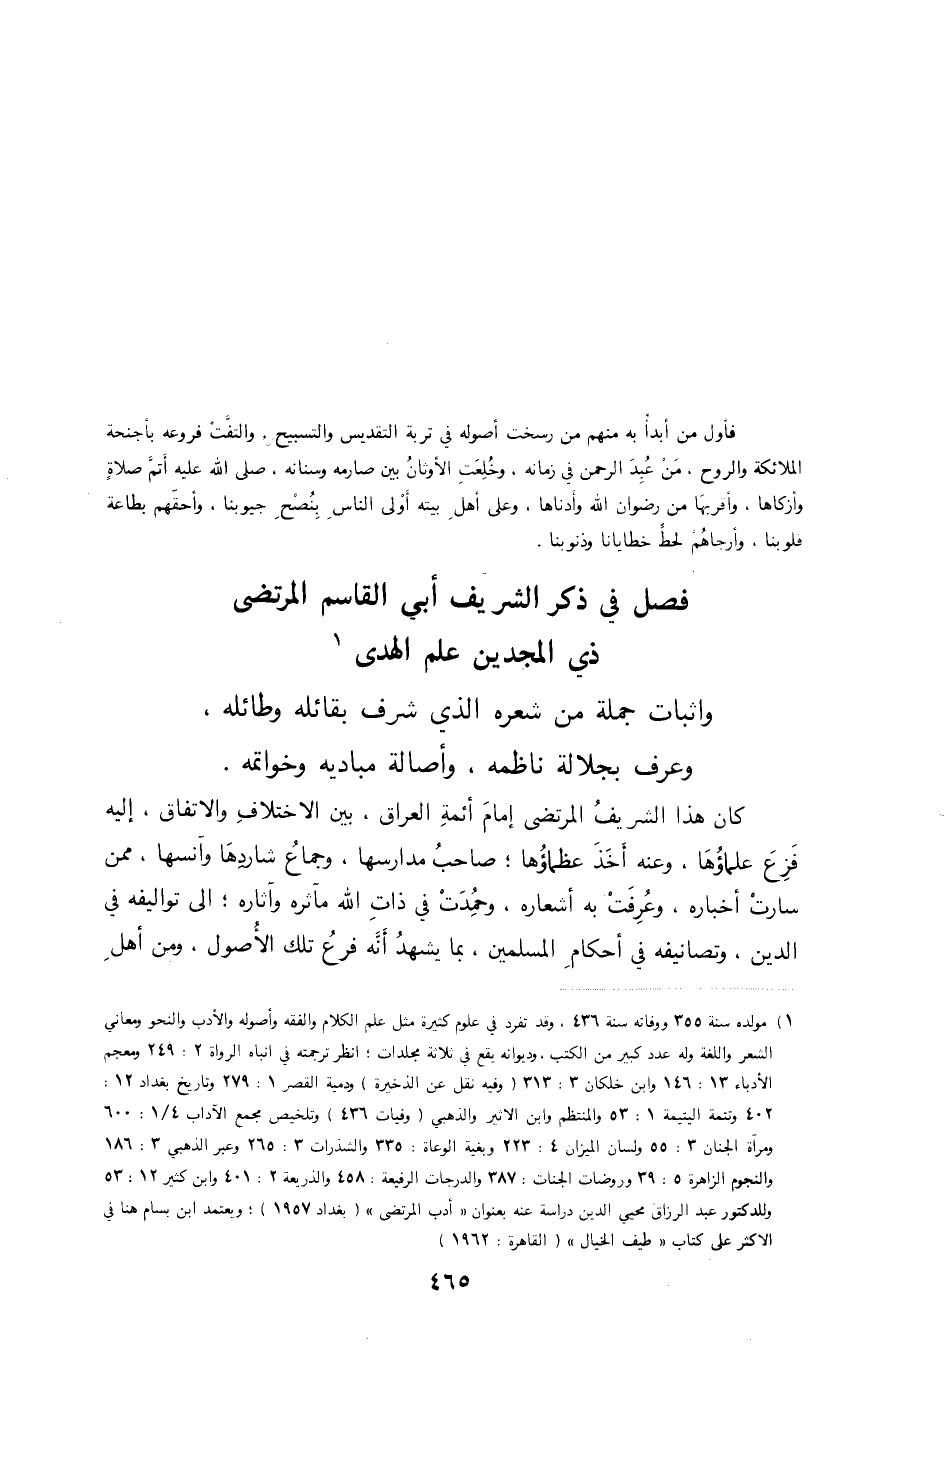 فأول من أبدأ به منهم من رسخت أصوله في تربة التقديس والتسبيح ، والتفَّتْ فروعه بأجنحة
الملائكة والروح ، مَنْ عُبِدَ الرحمن في زمانه ، وخُلِعَتِ الأوثانُ بين صارمه وسنانه ، صلى الله عليه أتمَّ صلاةٍ
وأزكاها ، وأقربهَا من رضوان الله وأدناها ، وعلى أهلِ بيته أوْلى الناسِ بِنُصْحِ جيوبنا ، وأحقّهم بطاعة
قلوبنا ، وأرجاهُمْ لحطِّ خطايانا وذنوبنا .
فصل في ذكر الشريف أبي القاسم المرتضى
ذي المجدين علم الهدى ١
واثبات جملة من شعره الذي شرف بقائله وطائله ،
وعرف بجلالة ناظمه ، وأصالة مباديه وخواتمه .
كان هذا الشريفُ المرتضى إمامَ أئمةِ العراق ، بين الاختلافِ والاتفاق ، إليه
فَزِعَ علماؤُهَا ، وعنه أَخَذَ عظماؤُها ؛ صاحبُ مدارسها ، وجماعُ شاردِهَا وآنسها ، ممن
سارتْ أخباره ، وعُرِفَتْ به أشعاره ، وحمُدَتْ في ذاتِ الله مآثره وآثاره ؛ الى تواليفه في
الدين ، وتصانيفه في أحكامِ المسلمين ، بما يشهدُ أنَّه فرعُ تلك الأُصول ، ومن أهلِ
١) مولده سنة ٣٥٥ ووفاته سنة ٤٣٦ ، وقد تفرد في علوم كثيرة مثل علم الكلام والفقه وأصوله والأدب والنحو ومعاني
الشعر واللغة وله عدد كبير من الكتب ، وديوانه يقع في ثلاثة مجلدات ؛ انظر ترجمته في انباه الرواة ٢ : ٢٤٩ ومعجم
الأدباء ١٣ : ١٤٦ وابن خلكان ٣ : ٣١٣ ( وفيه نقل عن الذخيرة ) ودمية القصر ١ : ٢٧٩ وتاريخ بغداد ١٢ :
٤٠٢ وتتمة اليتيمة ١ : ٥٣ والمنتظم وابن الاثير والذهبي ( وفيات ٤٣٦ ) وتلخيص مجمع الآداب ١/٤ : ٦٠٠
ومرآة الجنان ٣ : ٥٥ ولسان الميزان ٤ : ٢٢٣ وبغية الوعاة : ٣٣٥ والشذرات ٣ : ٢٦٥ وعبر الذهبي ٣ : ١٨٦
والنجوم الزاهرة ٥ : ٣٩ وروضات الجنات : ٣٨٧ والدرجات الرفيعة : ٤٥٨ والذريعة ٢ : ٤٠١ وابن كثير ١٢ : ٥٣
وللدكتور عبد الرزاق محيي الدين دراسة عنه بعنوان « أدب المرتضى » ( بغداد ١٩٥٧ ) ؛ ويعتمد ابن بسام هنا في
الاكثر على كتاب « طيف الخيال » ( القاهرة : ١٩٦٢ )
٤٦٥